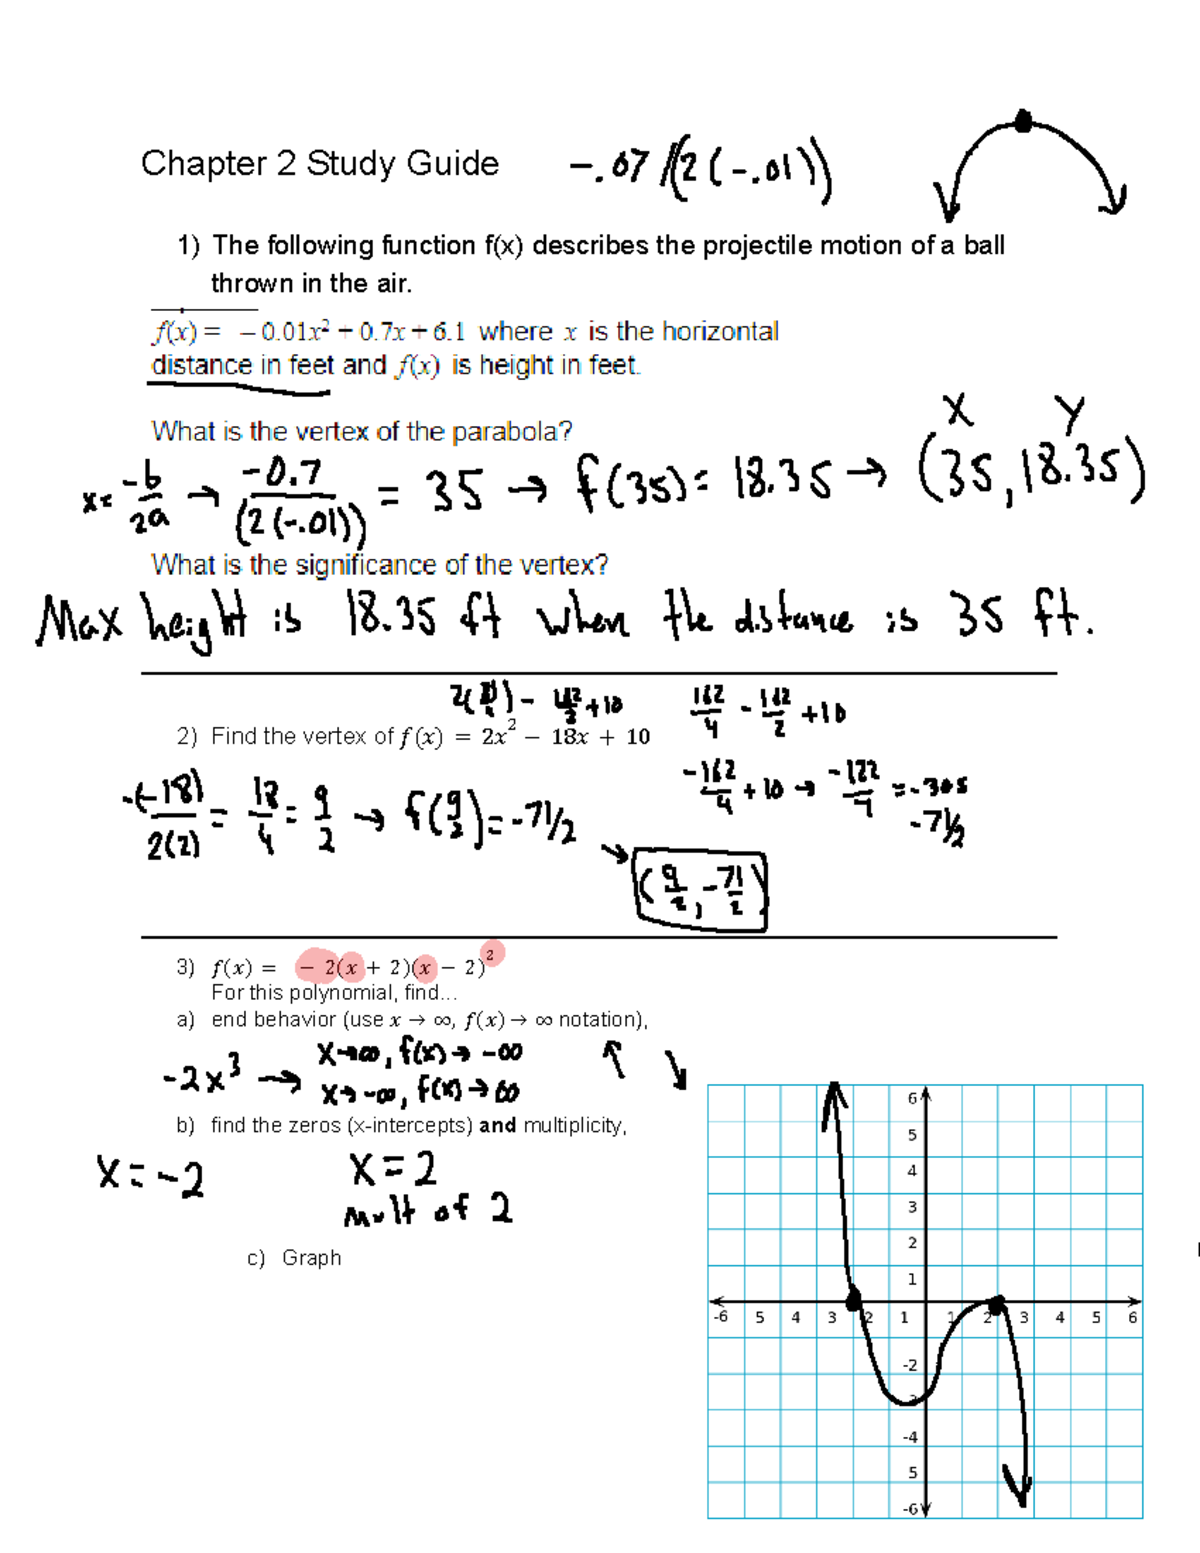 Chapter 2 Study Guide
-.07/(2(-.01))
1) The following function f(x) describes the projectile motion of a ball
thrown in the air.
f(x) = − 0.01x² + 0.7x + 6.1 where x is the horizontal
distance in feet and f(x) is height in feet.
What is the vertex of the parabola?
X Y
x= -b/2a → -0.7/(2(-.01)) = 35 → f(35)= 18.35 → (35,18.35)
What is the significance of the vertex?
Max height is 18.35 ft when the distance is 35 ft.
162/4 - 162/2 +10
2) Find the vertex of f(x) = 2x² − 18x + 10
-162/4 +10 →
-(-18)/2(2) = 18/4 = 9/2 → f(9/2)=-71/2
-71/2
(9/2, -71/2)
3) f(x) = − 2(x + 2)(x − 2)²
For this polynomial, find...
a) end behavior (use x → ∞, f(x) → ∞ notation),
-2x³ → x→∞, f(x)→ -∞
x→-∞, f(x)→∞
b) find the zeros (x-intercepts) and multiplicity,
x=-2 x=2
mult of 2
c) Graph
6
5
4
3
2
1
-6 5 4 3 2 1 1 2 3 4 5 6
-2
-4
5
-6